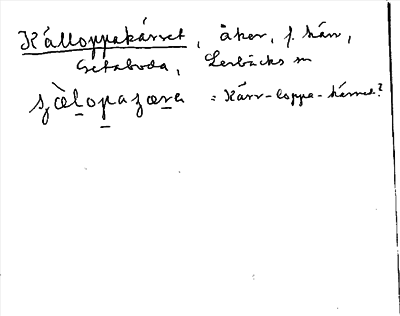 Källoppakärret, åker, f. kärr,
Getaboda, Lerbäcks sn
sz̀àlopazæra = Kärr-loppa-kärret?